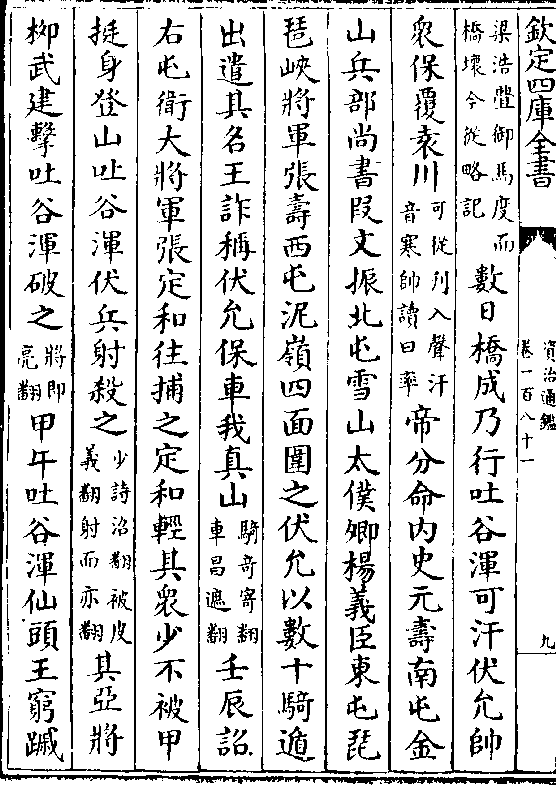 欽定四庫全書
資治通鑑
卷一百八十一
九
梁浩亹御馬度而
橋壞今從略記
數日橋成乃行吐谷渾可汗伏允帥
衆保覆袁川
可從刋入聲汗
音寒帥讀曰率
帝分命内史元壽南屯金
山兵部尚書段文振北屯雪山太僕卿楊義臣東屯琵
琶峽將軍張壽西屯泥嶺四面圍之伏允以數十騎遁
出遣其名王詐稱伏允保車我真山
騎奇寄翻
車昌遮翻
壬辰詔
右屯衛大將軍張定和往捕之定和輕其衆少不被甲
挺身登山吐谷渾伏兵射殺之
少詩沼翻被皮
義翻射而亦翻
其亞將
柳武建擊吐谷渾破之
將即
亮翻
甲午吐谷渾仙頭王窮蹴